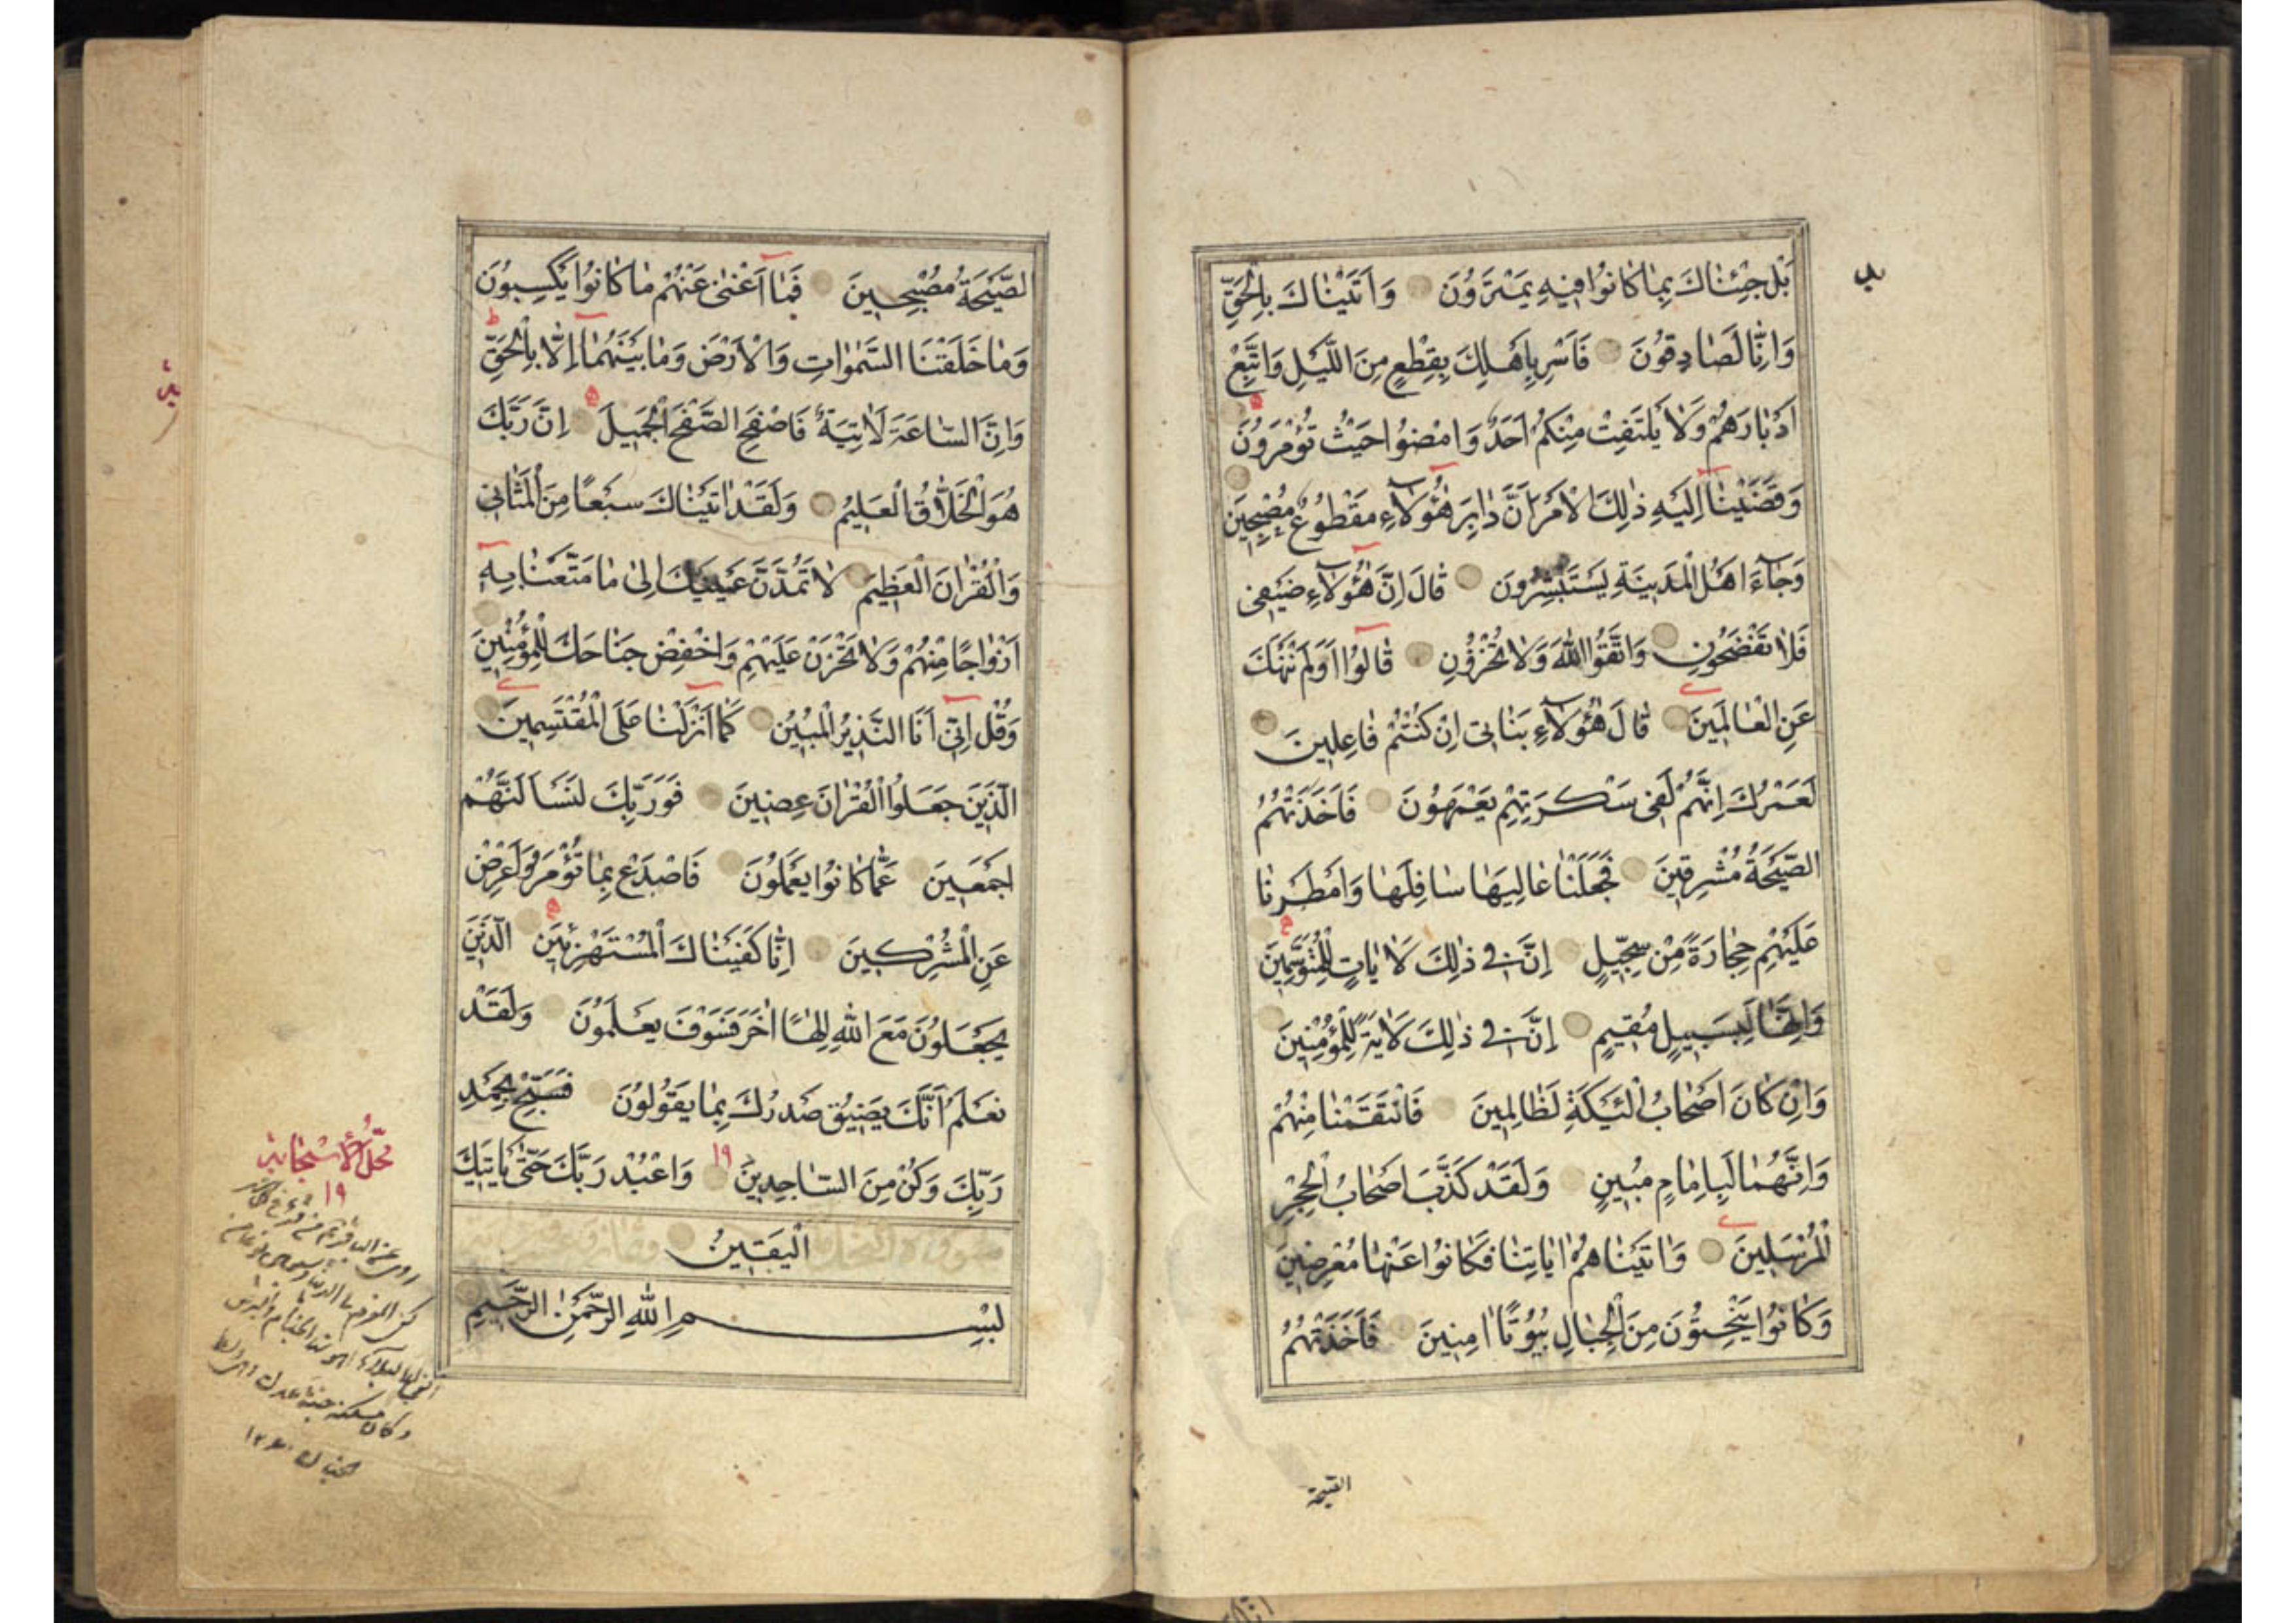 بَلْ جِئْنَاكَ بِمَا كَانُوا فِيهِ يَمْتَرُونَ وَاَتَيْنَاكَ بِالْحَقِّ
وَاِنَّا لَصَادِقُونَ فَاَسْرِ بِاَهْلِكَ بِقِطْعٍ مِنَ اللَّيْلِ وَاتَّبِعْ
اَدْبَارَهُمْ وَلَا يَلْتَفِتْ مِنْكُمْ اَحَدٌ وَامْضُوا حَيْثُ تُؤْمَرُونَ
وَقَضَيْنَا اِلَيْهِ ذٰلِكَ الْاَمْرَ اَنَّ دَابِرَ هٰؤُلَاءِ مَقْطُوعٌ مُصْبِحِينَ
وَجَاءَ اَهْلُ الْمَدِينَةِ يَسْتَبْشِرُونَ قَالَ اِنَّ هٰؤُلَاءِ ضَيْفِي
فَلَا تَفْضَحُونِ وَاتَّقُوا اللّٰهَ وَلَا تُخْزُونِ قَالُوا اَوَلَمْ نَنْهَكَ
عَنِ الْعَالَمِينَ قَالَ هٰؤُلَاءِ بَنَاتِي اِنْ كُنْتُمْ فَاعِلِينَ
لَعَمْرُكَ اِنَّهُمْ لَفِي سَكْرَتِهِمْ يَعْمَهُونَ فَاَخَذَتْهُمُ
الصَّيْحَةُ مُشْرِقِينَ فَجَعَلْنَا عَالِيَهَا سَافِلَهَا وَاَمْطَرْنَا
عَلَيْهِمْ حِجَارَةً مِنْ سِجِّيلٍ اِنَّ فِي ذٰلِكَ لَاٰيَاتٍ لِلْمُتَوَسِّمِينَ
وَاِنَّهَا لَبِسَبِيلٍ مُقِيمٍ اِنَّ فِي ذٰلِكَ لَاٰيَةً لِلْمُؤْمِنِينَ
وَاِنْ كَانَ اَصْحَابُ الْئَيْكَةِ لَظَالِمِينَ فَانْتَقَمْنَا مِنْهُمْ
وَاِنَّهُمَا لَبِاِمَامٍ مُبِينٍ وَلَقَدْ كَذَّبَ اَصْحَابُ الْحِجْرِ
الْمُرْسَلِينَ وَاٰتَيْنَاهُمْ اٰيَاتِنَا فَكَانُوا عَنْهَا مُعْرِضِينَ
وَكَانُوا يَنْحِتُونَ مِنَ الْجِبَالِ بُيُوتًا اٰمِنِينَ فَاَخَذَتْهُمُ
الصَّيْحَةُ مُصْبِحِينَ فَمَا اَغْنٰى عَنْهُمْ مَا كَانُوا يَكْسِبُونَ
وَمَا خَلَقْنَا السَّمٰوَاتِ وَالْاَرْضَ وَمَا بَيْنَهُمَا اِلَّا بِالْحَقِّ
وَاِنَّ السَّاعَةَ لَاٰتِيَةٌ فَاصْفَحِ الصَّفْحَ الْجَمِيلَ اِنَّ رَبَّكَ
هُوَ الْخَلَّاقُ الْعَلِيمُ وَلَقَدْ اٰتَيْنَاكَ سَبْعًا مِنَ الْمَثَانِي
وَالْقُرْاٰنَ الْعَظِيمَ لَا تَمُدَّنَّ عَيْنَيْكَ اِلٰى مَا مَتَّعْنَا بِهِ
اَزْوَاجًا مِنْهُمْ وَلَا تَحْزَنْ عَلَيْهِمْ وَاخْفِضْ جَنَاحَكَ لِلْمُؤْمِنِينَ
وَقُلْ اِنِّي اَنَا النَّذِيرُ الْمُبِينُ كَمَا اَنْزَلْنَا عَلَى الْمُقْتَسِمِينَ
الَّذِينَ جَعَلُوا الْقُرْاٰنَ عِضِينَ فَوَرَبِّكَ لَنَسْاَلَنَّهُمْ
اَجْمَعِينَ عَمَّا كَانُوا يَعْمَلُونَ فَاصْدَعْ بِمَا تُؤْمَرُ وَاَعْرِضْ
عَنِ الْمُشْرِكِينَ اِنَّا كَفَيْنَاكَ الْمُسْتَهْزِئِينَ الَّذِينَ
يَجْعَلُونَ مَعَ اللّٰهِ اِلٰهًا اٰخَرَ فَسَوْفَ يَعْلَمُونَ وَلَقَدْ
نَعْلَمُ اَنَّكَ يَضِيقُ صَدْرُكَ بِمَا يَقُولُونَ فَسَبِّحْ بِحَمْدِ
رَبِّكَ وَكُنْ مِنَ السَّاجِدِينَ ١٩ وَاعْبُدْ رَبَّكَ حَتّٰى يَاْتِيَكَ
الْيَقِينُ
بِسْمِ اللّٰهِ الرَّحْمٰنِ الرَّحِيمِ
١٩